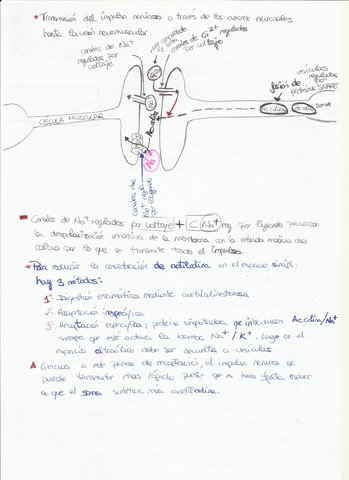 Transmisión del impulso nervioso a través de los axones neuronales
hasta la unión neuromuscular.
canales de Na+
regulados por
voltaje
canales de Ca2+ regulados
por voltaje
vesículas
reguladas
por
proteínas SNARE
fusión de
Ca2+
Na+
Acolina
Acolina
SOMA
CÉLULA MUSCULAR
Na+
Canales de
Na+ regulados
por ligando
Canales de Na+ regulados por voltaje + C Na+ reg. por ligando provocan
la despolarización masiva de la membrana con la entrada masiva de
calcio por lo que se transmite todo el impulso.
Para reducir la concentración de acetilcolina en el espacio sinápt.
hay 3 métodos:
1º Digestión enzimática mediante acetilcolinesterasa.
2º Recaptación inespecífica.
3º Recaptación específica; proteína simportadora que introducen Acolina/Na+
siempre que esté activa la bomba Na+/K+. Luego en el
espacio citosólico debe ser devuelta a vesículas.
Gracias a este proceso de recaptación, el impulso nervioso se
puede transmitir más rápido puesto que no hace falta esperar
a que el soma sintetice más acetilcolina.